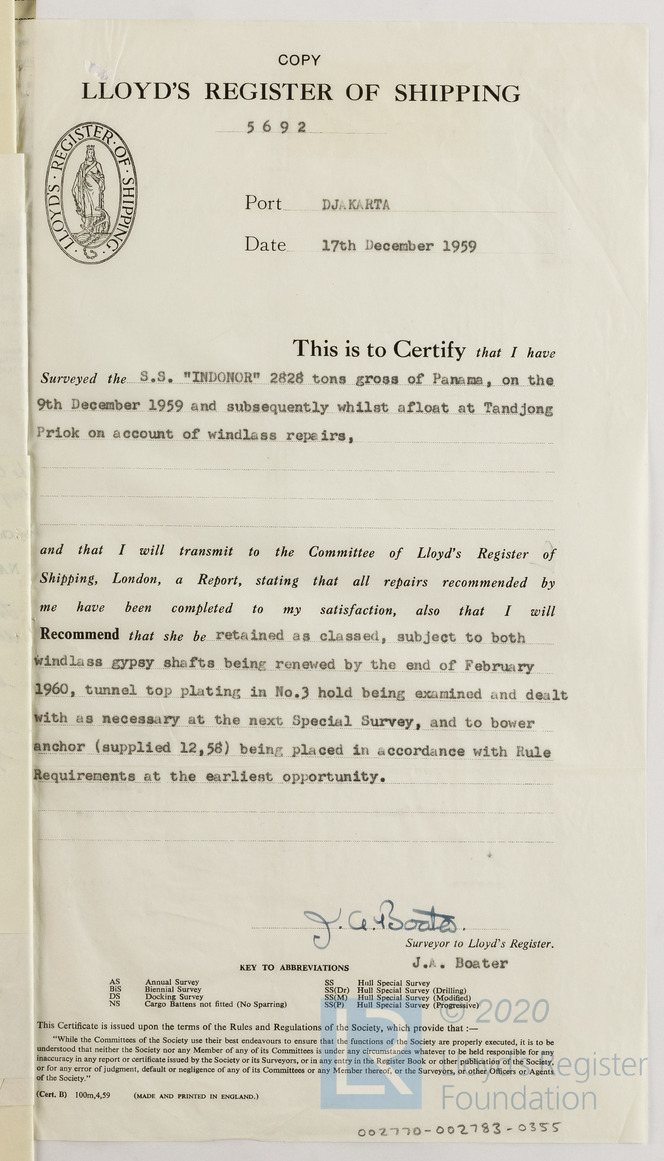 COPY
LLOYD'S REGISTER OF SHIPPING
5692
LLOYD'S · REGISTER · OF · SHIPPING ·
Port DJAKARTA
Date 17th December 1959
This is to Certify that I have
Surveyed the S.S. "INDONOR" 2828 tons gross of Panama, on the
9th December 1959 and subsequently whilst afloat at Tandjong
Priok on account of windlass repairs,
and that I will transmit to the Committee of Lloyd's Register of
Shipping, London, a Report, stating that all repairs recommended by
me have been completed to my satisfaction, also that I will
Recommend that she be retained as classed, subject to both
windlass gypsy shafts being renewed by the end of February
1960, tunnel top plating in No.3 hold being examined and dealt
with as necessary at the next Special Survey, and to bower
anchor (supplied 12,58) being placed in accordance with Rule
Requirements at the earliest opportunity.
J. A. Boater.
Surveyor to Lloyd's Register.
J.A. Boater
KEY TO ABBREVIATIONS
AS Annual Survey SS Hull Special Survey
BiS Biennial Survey SS(Dr) Hull Special Survey (Drilling)
DS Docking Survey SS(M) Hull Special Survey (Modified)
NS Cargo Battens not fitted (No Sparring) SS(P) Hull Special Survey (Progressive)
This Certificate is issued upon the terms of the Rules and Regulations of the Society, which provide that :—
"While the Committees of the Society use their best endeavours to ensure that the functions of the Society are properly executed, it is to be
understood that neither the Society nor any Member of any of its Committees is under any circumstances whatever to be held responsible for any
inaccuracy in any report or certificate issued by the Society or its Surveyors, or in any entry in the Register Book or other publication of the Society,
or for any error of judgment, default or negligence of any of its Committees or any Member thereof, or the Surveyors, or other Officers or Agents
of the Society."
(Cert. B) 100m,4,59 (MADE AND PRINTED IN ENGLAND.)
© 2020
Lloyd's Register
Foundation
002770-002783-0355